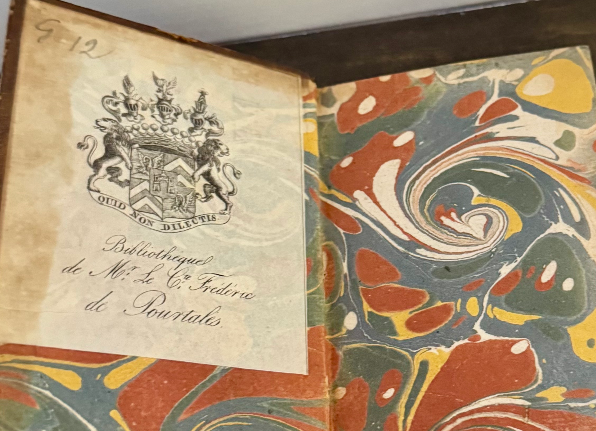 G 12
QUID NON DILECTIS
Bibliothequel
de Mr. Le Cte. Fréderic
de Pourtales